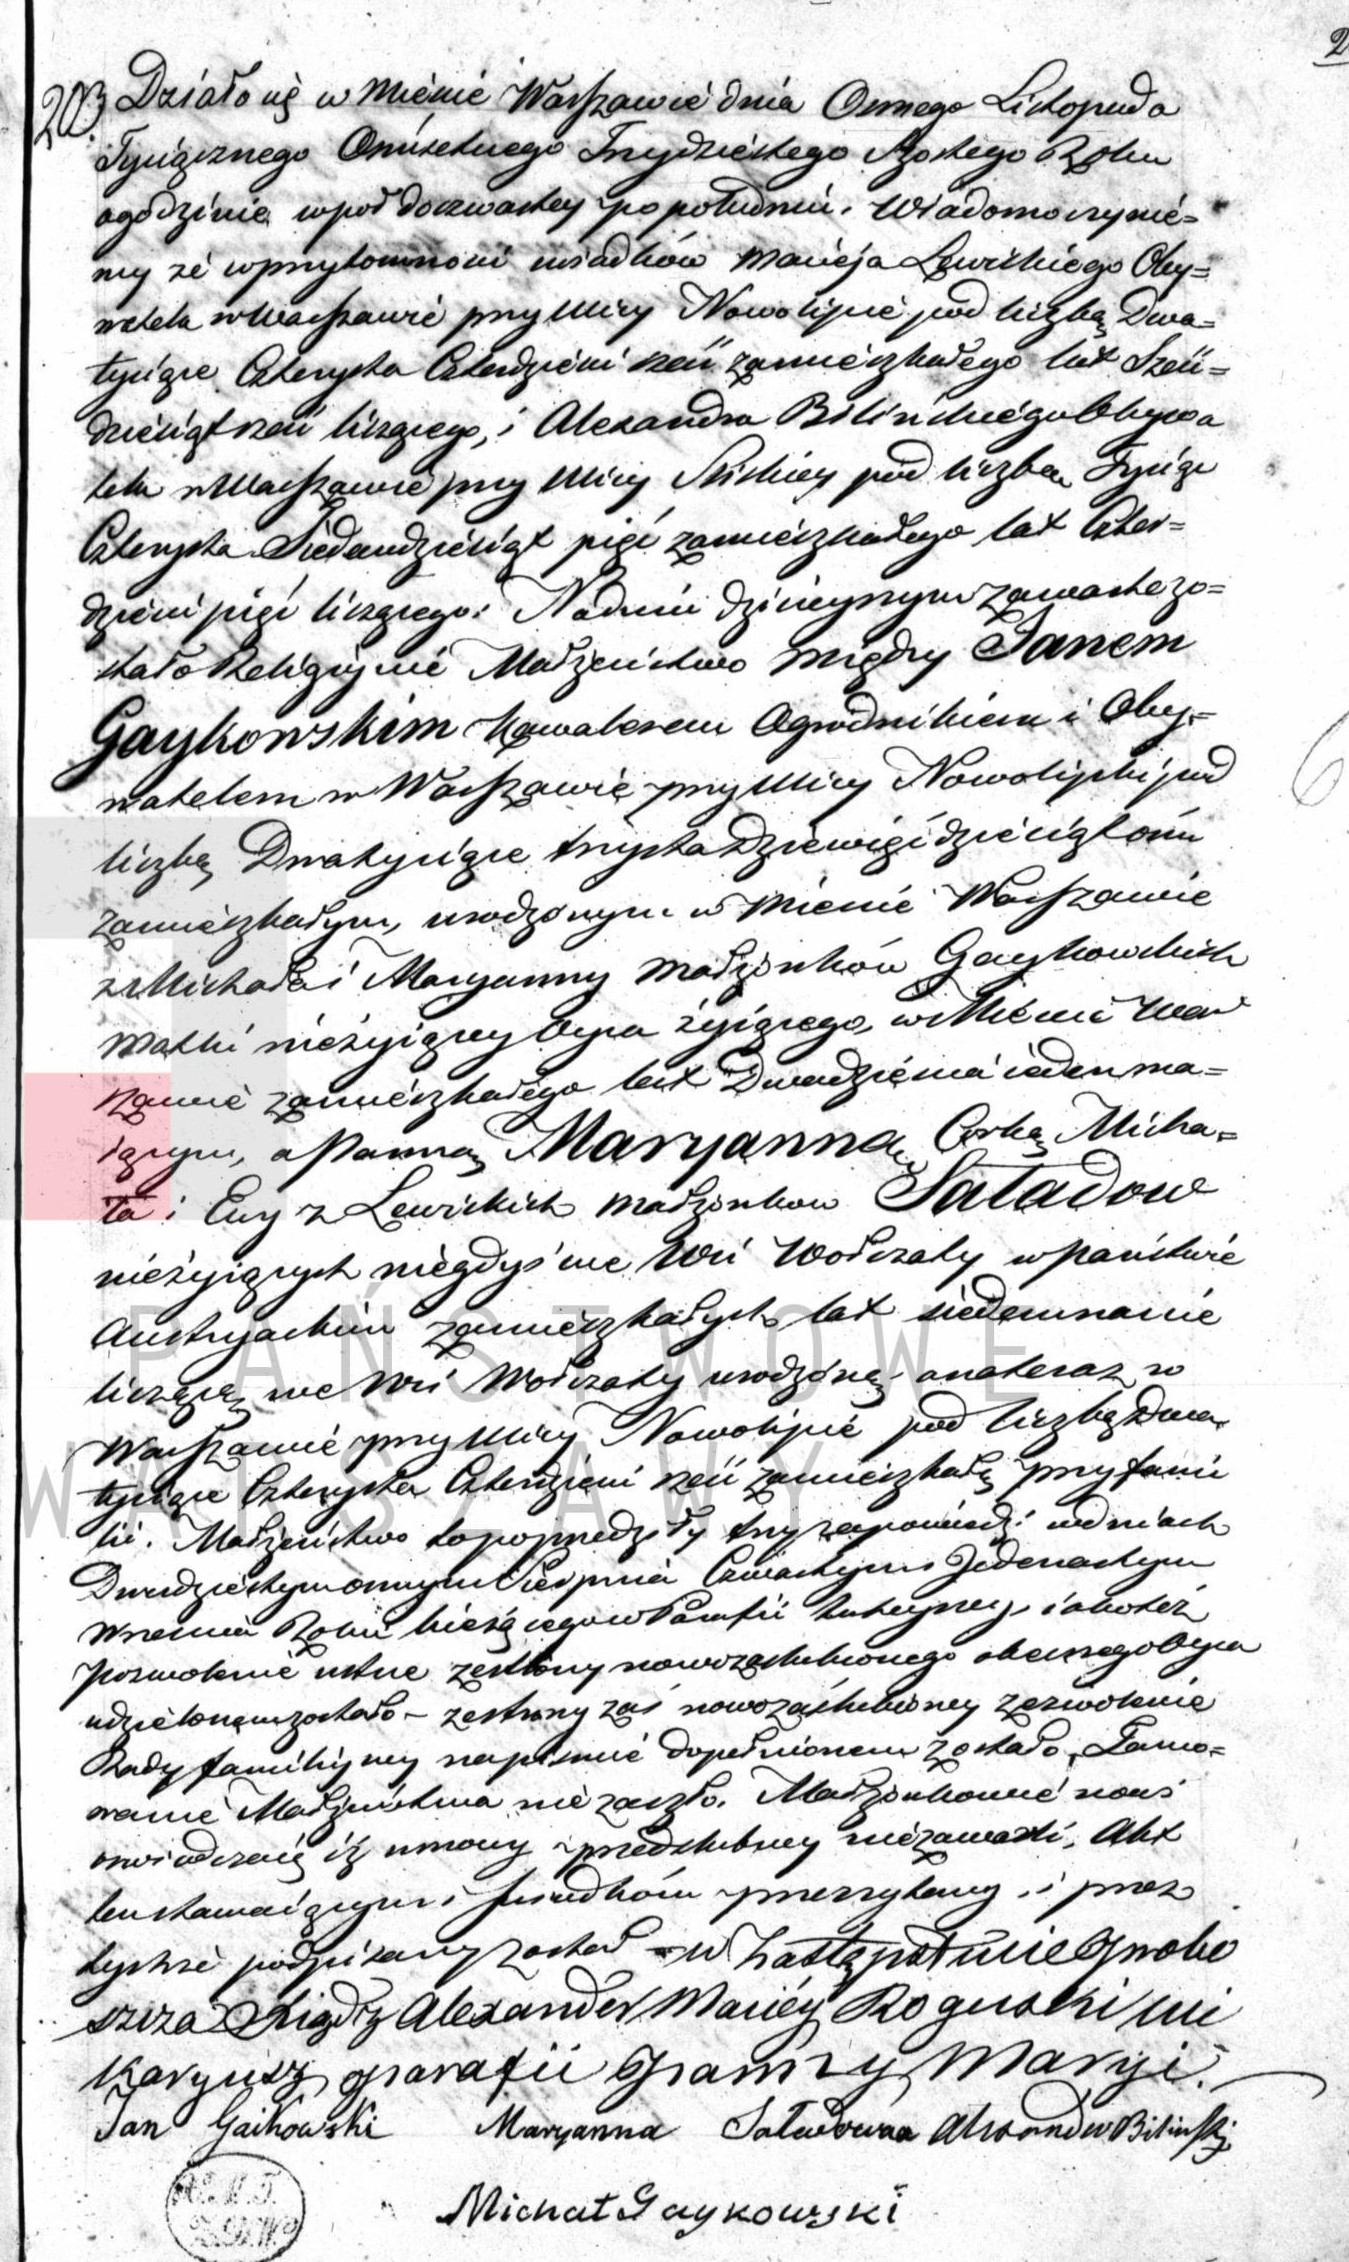 203. Działo się w Mieście Warszawie dnia Osmego Listopada
Tysiącznego Ośmsetnego Trzydziestego Szostego Roku
ogodzinie wpoł doczwartey popołudniu. Wiadomo czynie=
my że wprzytomności swiadków Macieja Lewickiego Oby=
watela w Warszawie przy Ulicy Nowolipie pod liczbą Dwa=
tysiące Czterysta Czterdzieści sześć zamieszkałego lat Sześć=
dziesiąt sześć liczącego, i Alexandra Bilińskiego Obywa
tela w Warszawie przy Ulicy Śliskiey pod liczbą Tysiąc
Czterysta Siedmdziesiąt pięć zamieszkałego lat Czter=
dzieści pięć liczącego. Na dniu dzisieyszym zawarte zo=
stało Religijnie Małżeństwo między Janem
Gaykowskim Kawalerem Ogrodnikiem i Oby=
watelem w Warszawie przy Ulicy Nowolipki pod
liczbą Dwatysiące trzysta dziewięćdziesiąt ośm
zamieszkałym, urodzonym w Mieście Warszawie
z Michała i Maryanny Małżonków Gaykowskich
Matki nieżyiącey Oyca żyiącego, w Mieście War
szawie zamieszkałego lat Dwadzieścia ieden ma=
iącym, a Panną Maryanną Corką Micha=
ła i Ewy z Lewickich Małżonkow Saładow
nieżyiących niegdyś we Wsi Wołczaty w Państwie
Austryackim zamieszkałych lat siedemnaście
liczącą we Wsi Wołczaty urodzoną a nateraz w
Warszawie przy Ulicy Nowolipie pod liczbą Dwa
tysiące Czterysta Czterdzieści sześć zamieszkałą przy fami
lii. Małżeństwo to poprzedziły trzy zapowiedzi w dniach
Dwudziestym osmym Sierpnia Czwartym i Jedenastym
Wrzesnia Roku bieżącego w Parafii tuteyszey, iakoteż
pozwolenie ustne ze strony nowozaslubionego obecnego Oyca
udzielonem zostało – ze strony zaś nowozaślubioney zezwolenie
Rady familiyney na pismie dopełnionem zostało. Tamo=
wanie Małżeństwa nie zaszło. Małżonkowie nowi
oswiadczaią iż umowy przedslubney niezawarli. Akt
ten stawaiącym i swiadkóm przeczytany, i przez
tychże podpisany został – w Zastępstwie Probo
szcza Xiądz Alexander Maciey Roguski wi
karyusz parafii Panny Maryi.
Jan Gaikowski Maryanna Saładowna Alexander Biliński
Michał Gaykowski
PAŃSTWOWE
WARSZAWY